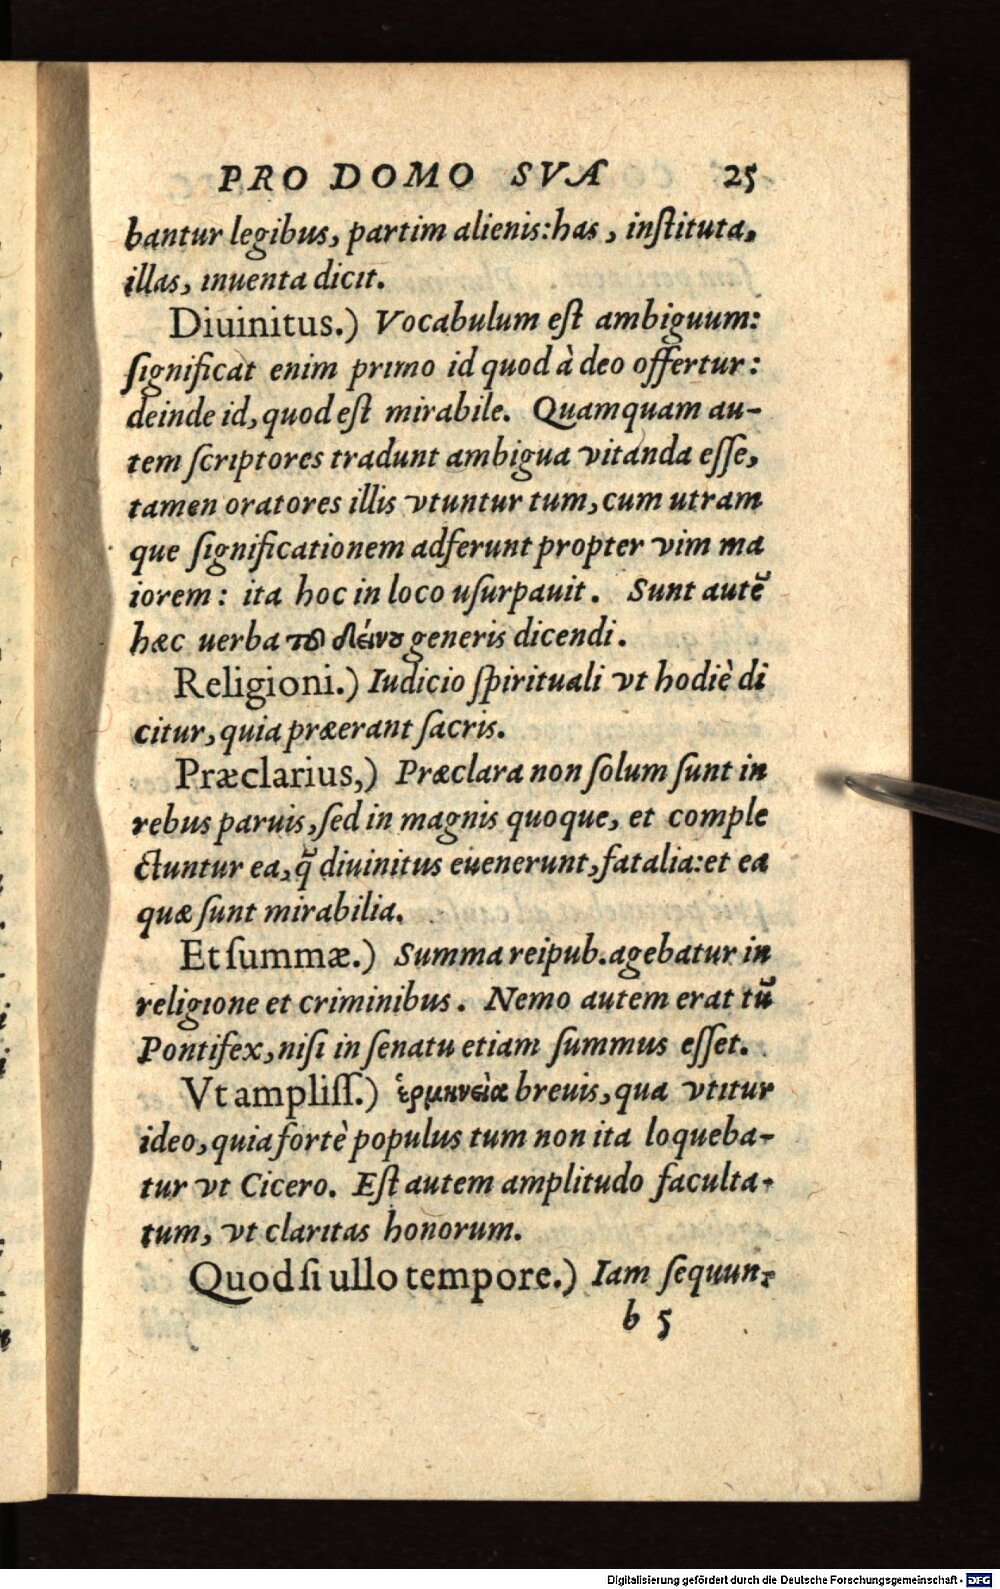 PRO DOMO SVA 25
bantur legibus, partim alienis:has, instituta,
illas, inuenta dicit.
Diuinitus.) Vocabulum est ambiguum:
significat enim primo id quod à deo offertur:
deinde id, quod est mirabile. Quamquam au-
tem scriptores tradunt ambigua vitanda esse,
tamen oratores illis vtuntur tum, cum utram
que significationem adferunt propter vim ma
iorem: ita hoc in loco usurpauit. Sunt autẽ
hæc uerba τοῦ δείνου generis dicendi.
Religioni.) Iudicio spirituali vt hodiè di
citur, quia præerant sacris.
Præclarius,) Præclara non solum sunt in
rebus paruis, sed in magnis quoque, et comple
ctuntur ea, q̃ diuinitus euenerunt, fatalia:et ea
quæ sunt mirabilia.
Et summæ.) Summa reipub.agebatur in
religione et criminibus. Nemo autem erat tũ
Pontifex, nisi in senatu etiam summus esset.
Vt ampliss.) ἑρμηνεία breuis, qua vtitur
ideo, quia fortè populus tum non ita loqueba-
tur vt Cicero. Est autem amplitudo faculta-
tum, vt claritas honorum.
Quod si ullo tempore.) Iam sequun-
b 5
Digitalisierung gefördert durch die Deutsche Forschungsgemeinschaft - DFG